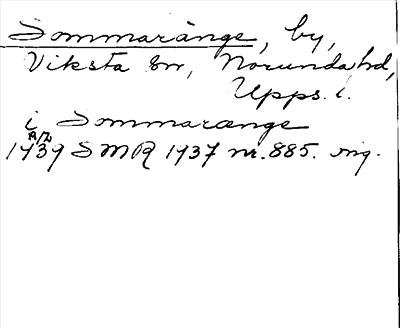 Sommaränge, by,
Viksta sn, Norunda hd,
Upps. l.
i Sommarænge
8/2
1439 SMR 1937 nr. 885. orig.